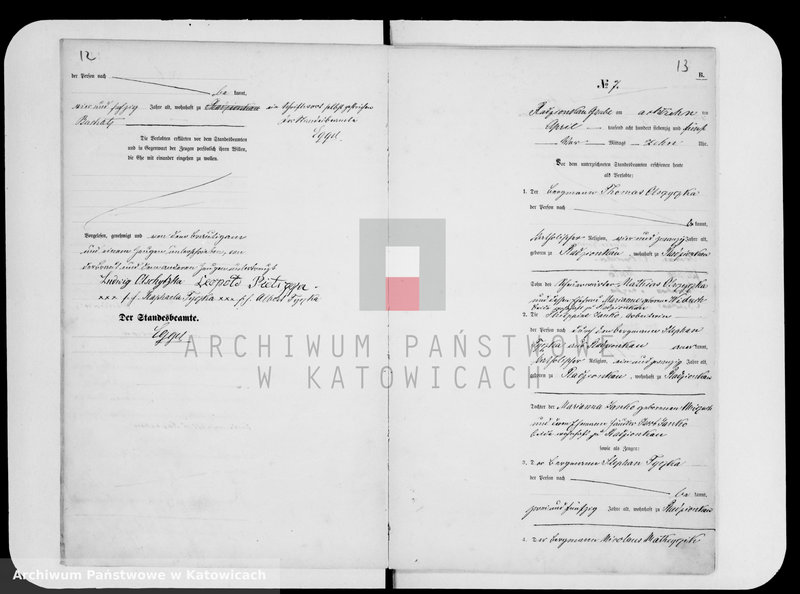 12
der Person nach
be kannt,
vier und fufzig Jahre alt, wohnhaft zu Radzionkau
Die Verlobten erklärten vor dem Standesbeamten
und in Gegenwart der Zeugen persönlich ihren Willen,
die Ehe mit einander eingehen zu wollen.
Vorgelesen, genehmigt und von dem Bräutigam
und einem Zeugen unterschrieben, von
der Braut und dem anderen Zeugen unterkreuzt
Leopold
xxx Raphaela Tyczka xxx Albert Tyczka
Der Standesbeamte.
Eggel
Der Standesbeamte
Eggel
13
B.
№ 7.
Radzionkau am achtzehn ten
April tausend acht hundert siebenzig und fünf
Vor Mittags zehn Uhr.
Vor dem unterzeichneten Standesbeamten erschienen heute
als Verlobte:
1. Der Bergmann Thomas
der Person nach
be kannt,
katholischer Religion, vier und zwanzig Jahre alt,
geboren zu Radzionkau, wohnhaft zu Radzionkau
Sohn des Mathias
und dessen Ehefrau Marianne geborene
beide wohnhaft zu Radzionkau
2. Die Janko, Arbeiterin
der Person nach durch den Bergmann Stephan
Tyczka aus Radzionkau aner kannt,
katholischer Religion, ein und zwanzig Jahre alt,
geboren zu Radzionkau, wohnhaft zu Radzionkau
Tochter der Marianna Janko geborenen
und deren Ehemann Händler Janko
beide wohnhaft zu Radzionkau
Sowie als Zeugen:
3. Der Bergmann Stephan Tyczka
der Person nach
be kannt,
zwei und fünfzig Jahre alt, wohnhaft zu Radzionkau
4. Der Bergmann Nicolaus
ARCHIWUM PAŃSTWOWE
W KATOWICACH
Archiwum Państwowe w Katowicach